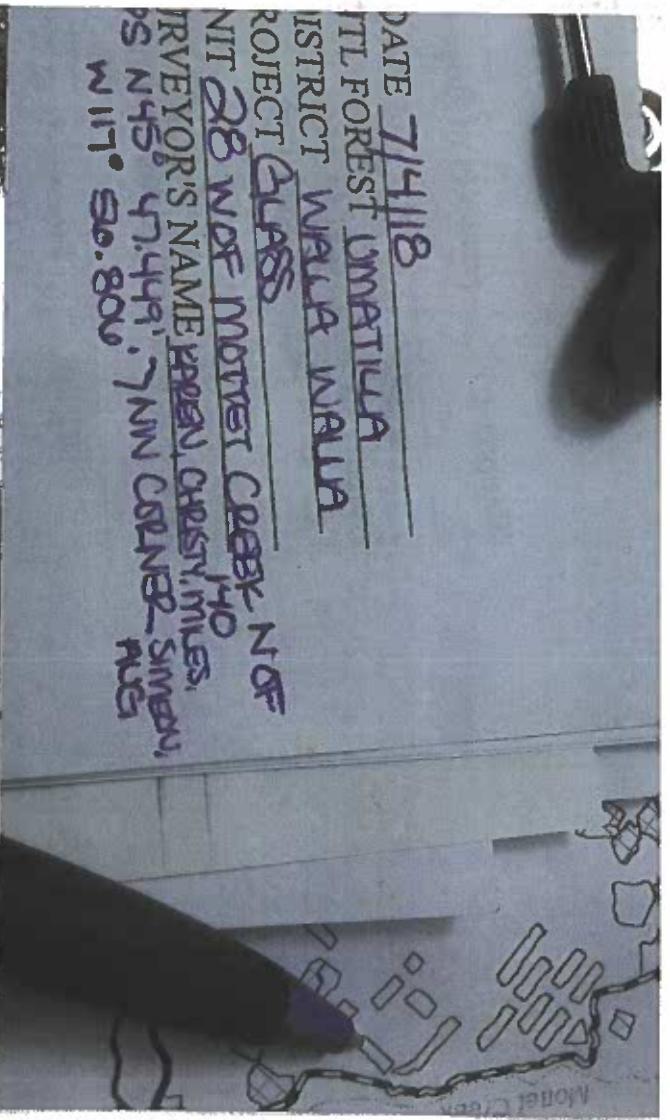 DATE 7/4/18
NTL FOREST UMATILLA
DISTRICT WALLA WALLA
PROJECT GLASS
UNIT 28 W OF MOTTET CREEK N OF
140
SURVEYOR'S NAME KAREN, CHRISTY, MILES,
PS N45° 47.449', 7NW CORNER SIMEON,
W 117° 56.806 AUG
Mottet Creek